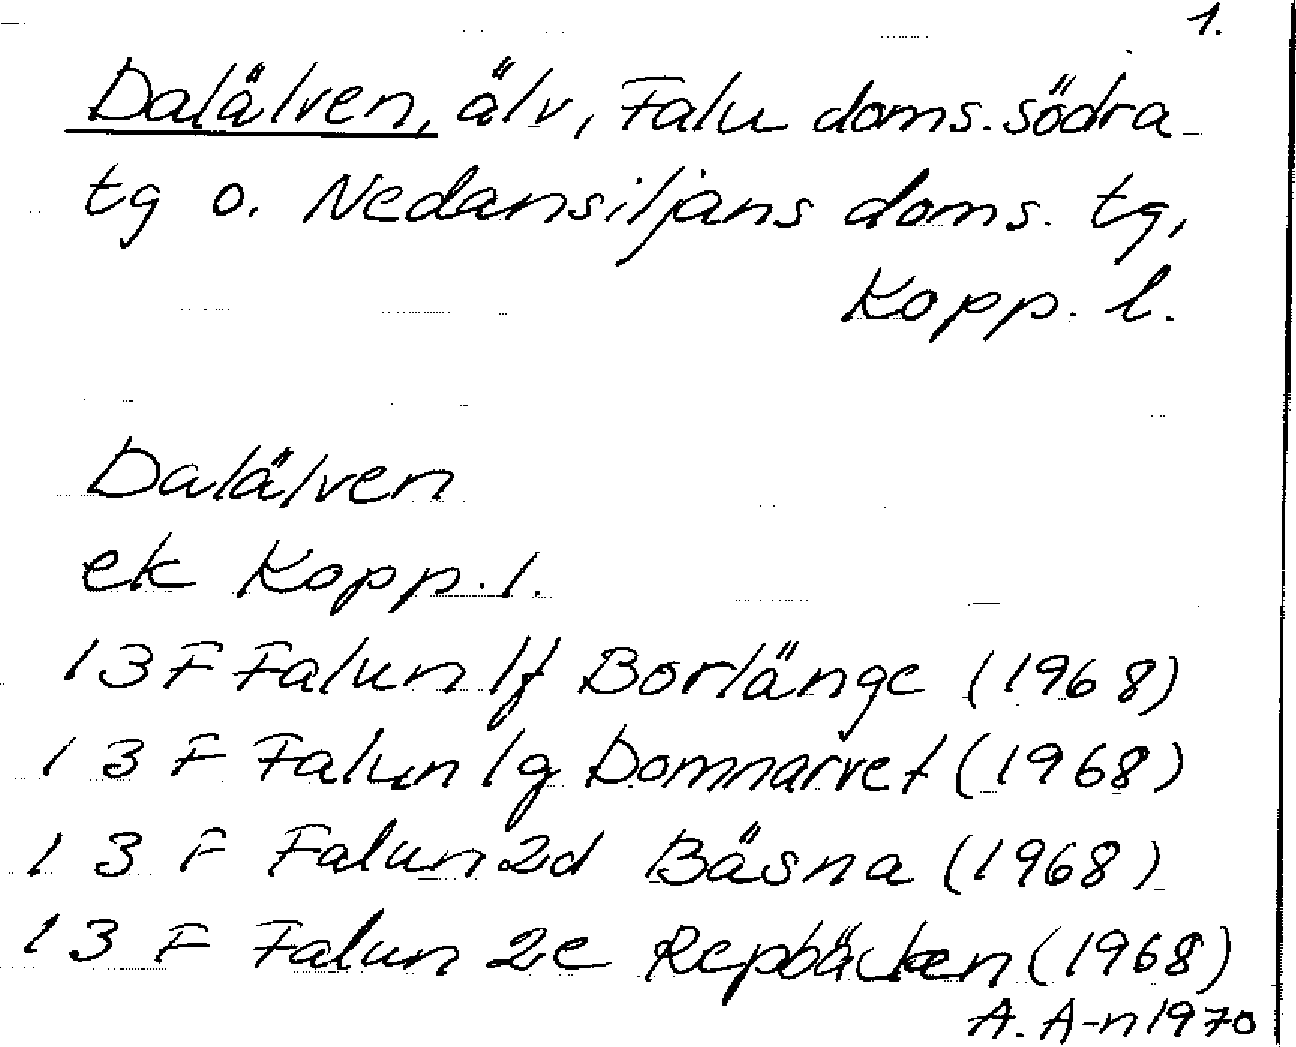 1.
Dalälven, älv, Falu doms. södra
tg o. Nedansiljans doms. tg,
Kopp. l.
Dalälven
ek Kopp. l.
13F Falun 1f Borlänge (1968)
13F Falun 1g Domnarvet (1968)
13F Falun 2d Bäsna (1968)
13F Falun 2e Repbäcken (1968)
A. A-n 1970